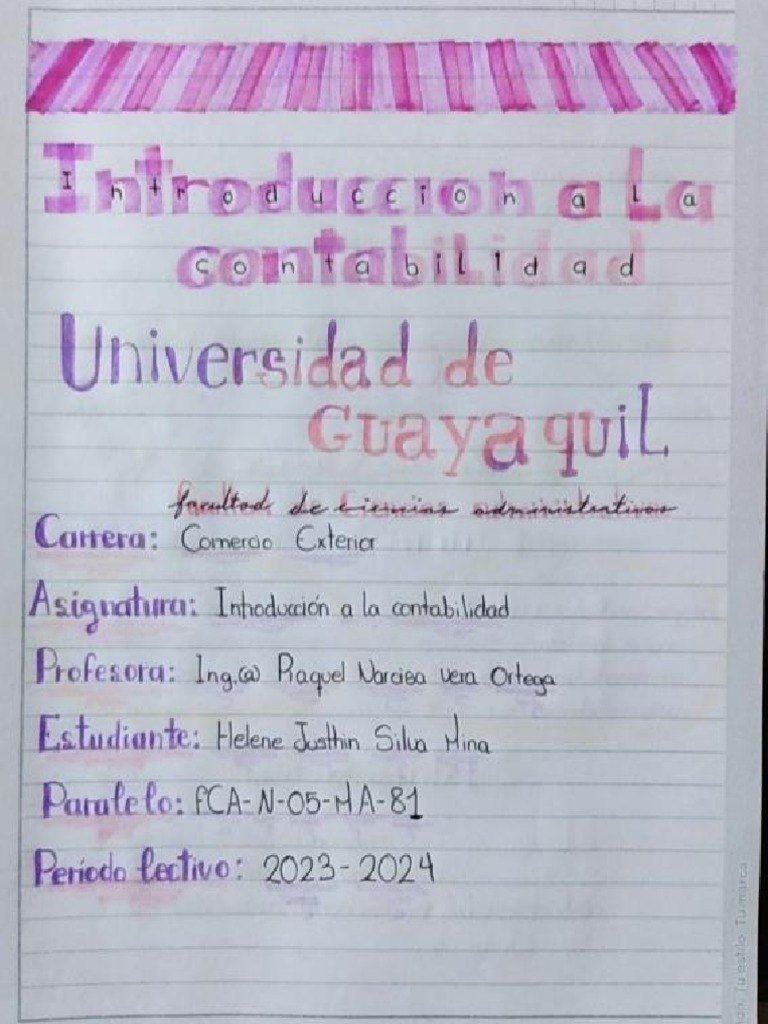 Introduccion a La
contabilidad
Universidad de
Guayaquil
facultad de ciencias administrativas
Carrera: Comercio Exterior
Asignatura: Introducción a la contabilidad
Profesora: Ing.@ Raquel Narcisa Vera Ortega
Estudiante: Helene Justhin Silva Mina
Paralelo: FCA-N-05-MA-81
Período lectivo: 2023-2024
Tu estilo Tu marca